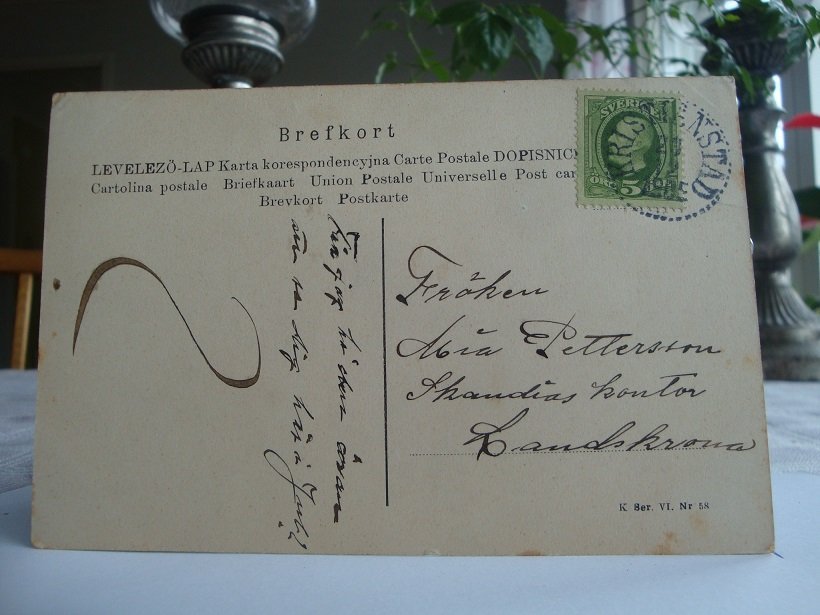 Brefkort
LEVELEZÖ-LAP Karta korespondencyjna Carte Postale DOPISNIC
Cartolina postale Briefkaart Union Postale Universelle Post car
Brevkort Postkarte
SVERIGE
5
KRISTIANSTAD
Fröken
Mia Pettersson
Skandias kontor
Landskrona
K Ser. VI. Nr 58
Får jag
se dig här i Jul?